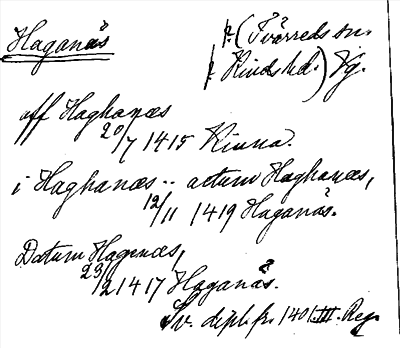 Haganäs
(Tvärreds sn.
Kinds hd.) Vg.
aff Haghanæs
20/7 1415 Kinna.
i Haghanæs .. actum Haghanæs,
12/11 1419 Haganäs.
Datum Hagenæs,
23/2 1417 Haganäs.
Sv. dipl. fr. 1401. III. Reg.